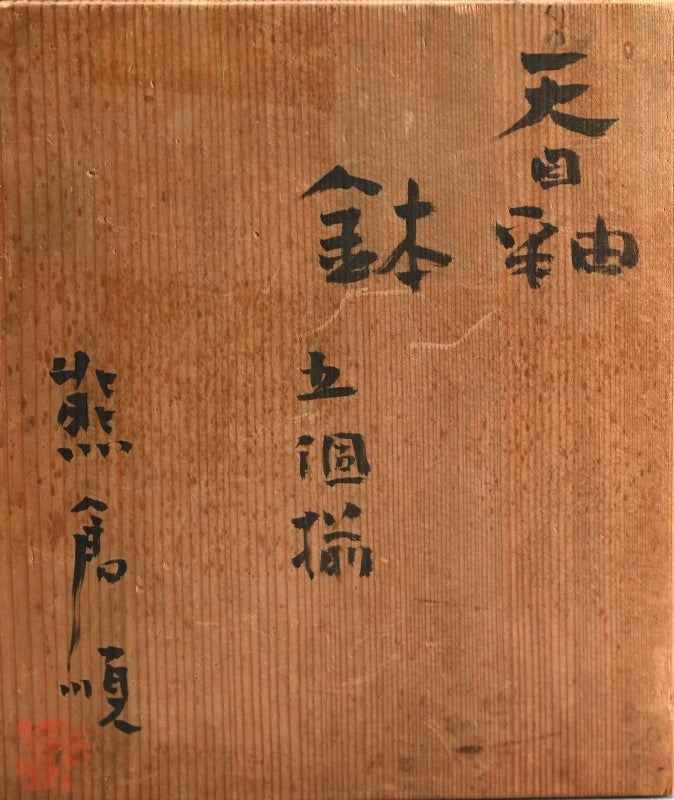 天目釉
鉢
五個揃
熊倉順